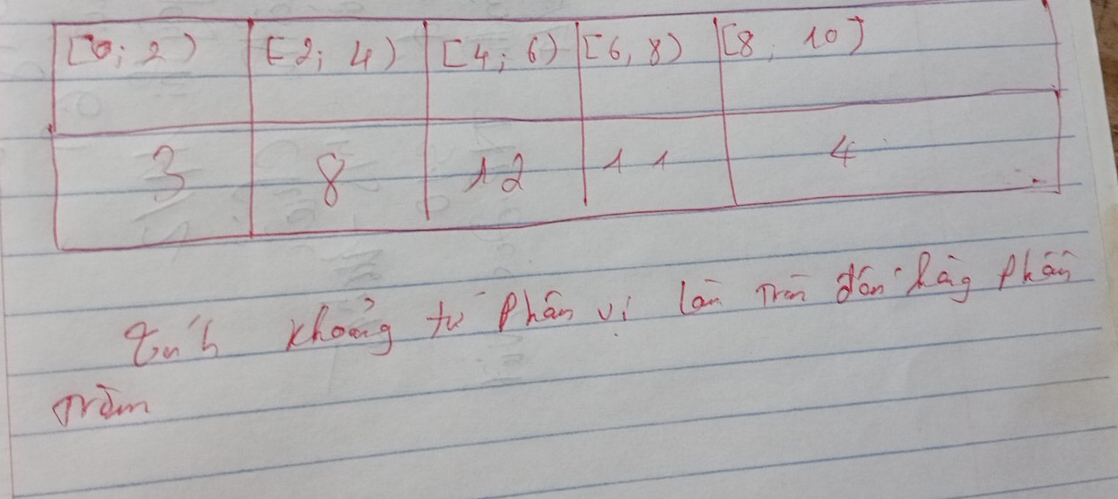 [0; 2) [2; 4) [4; 6) [6, 8) [8; 10)
3 8 12 11 4
Tính khoảng tứ phân vị làm tròn đến hàng phần
trăm